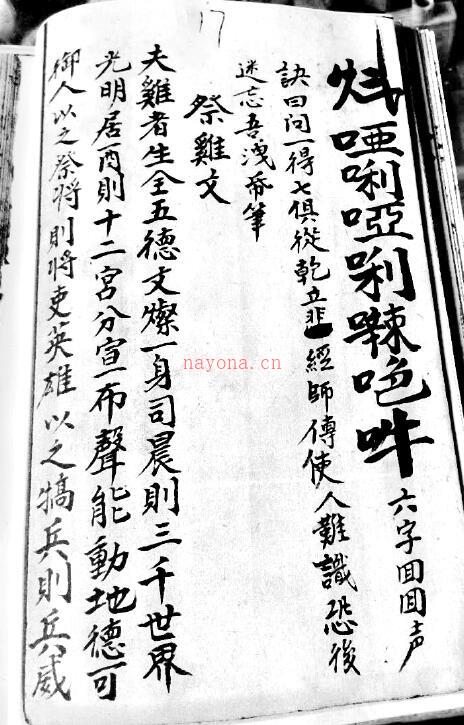 17
唎唎㖠吽六字囬囬声
訣曰问一得七俱從乾立非經師傳使人難識恐後
迷忘吾洩吞筆
祭雞文
夫雞者生全五德文燦一身司晨則三千世界
光明居酉則十二宮分宣布聲能動地德可
御人以之祭將則將吏英雄以之犒兵則兵威
nayona.cn